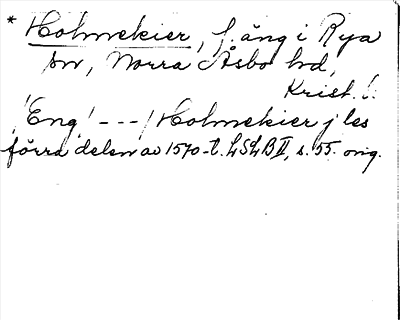 * Holmekier, f. äng i Rya
sn, Norra Åsbo hd,
Krist. l.
'Eng' ---/ Holmekier j les
förra delen av 1570-t. LSLB II, s. 55. orig.